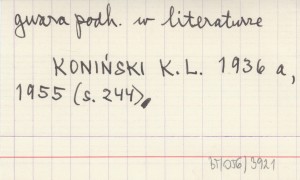 gwara podh. w literaturze
KONIŃSKI K.L. 1936 a,
1955 (s. 244),